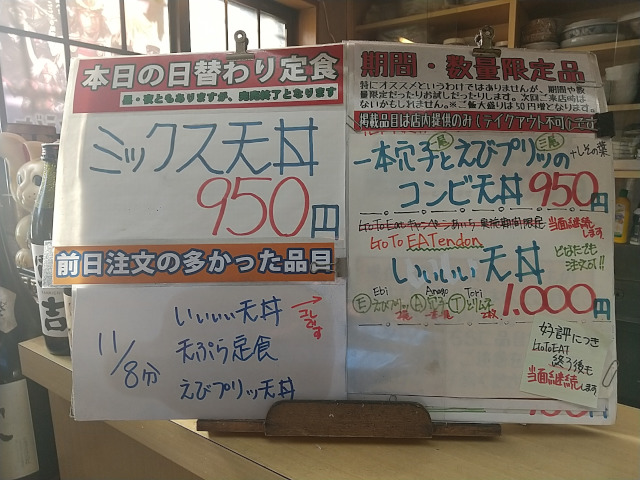 本日の日替わり定食
昼・夜ともありますが、完売終了となります
ミックス天丼
950円
前日注文の多かった品目
11/8分
いいいい天丼
コレです
天ぷら定食
えびプリッ天丼
期間・数量限定品
特にオススメというわけではありませんが、期間や数
量限定だったりお試しだったりします。次回ご来店時は
ないかもしれません。※ご飯大盛りは50円増となります。
掲載品目は店内提供のみ(テイクアウト不可)です
一本穴子とえびプリッの
+しその葉
コンビ天丼 950円
当面継続します
GoTo EATendon
いいいい天丼
どなたでも
注文可!!
Ebi Anago Tori
1.000円
好評につき
GoToEAT
終了後も
当面継続します